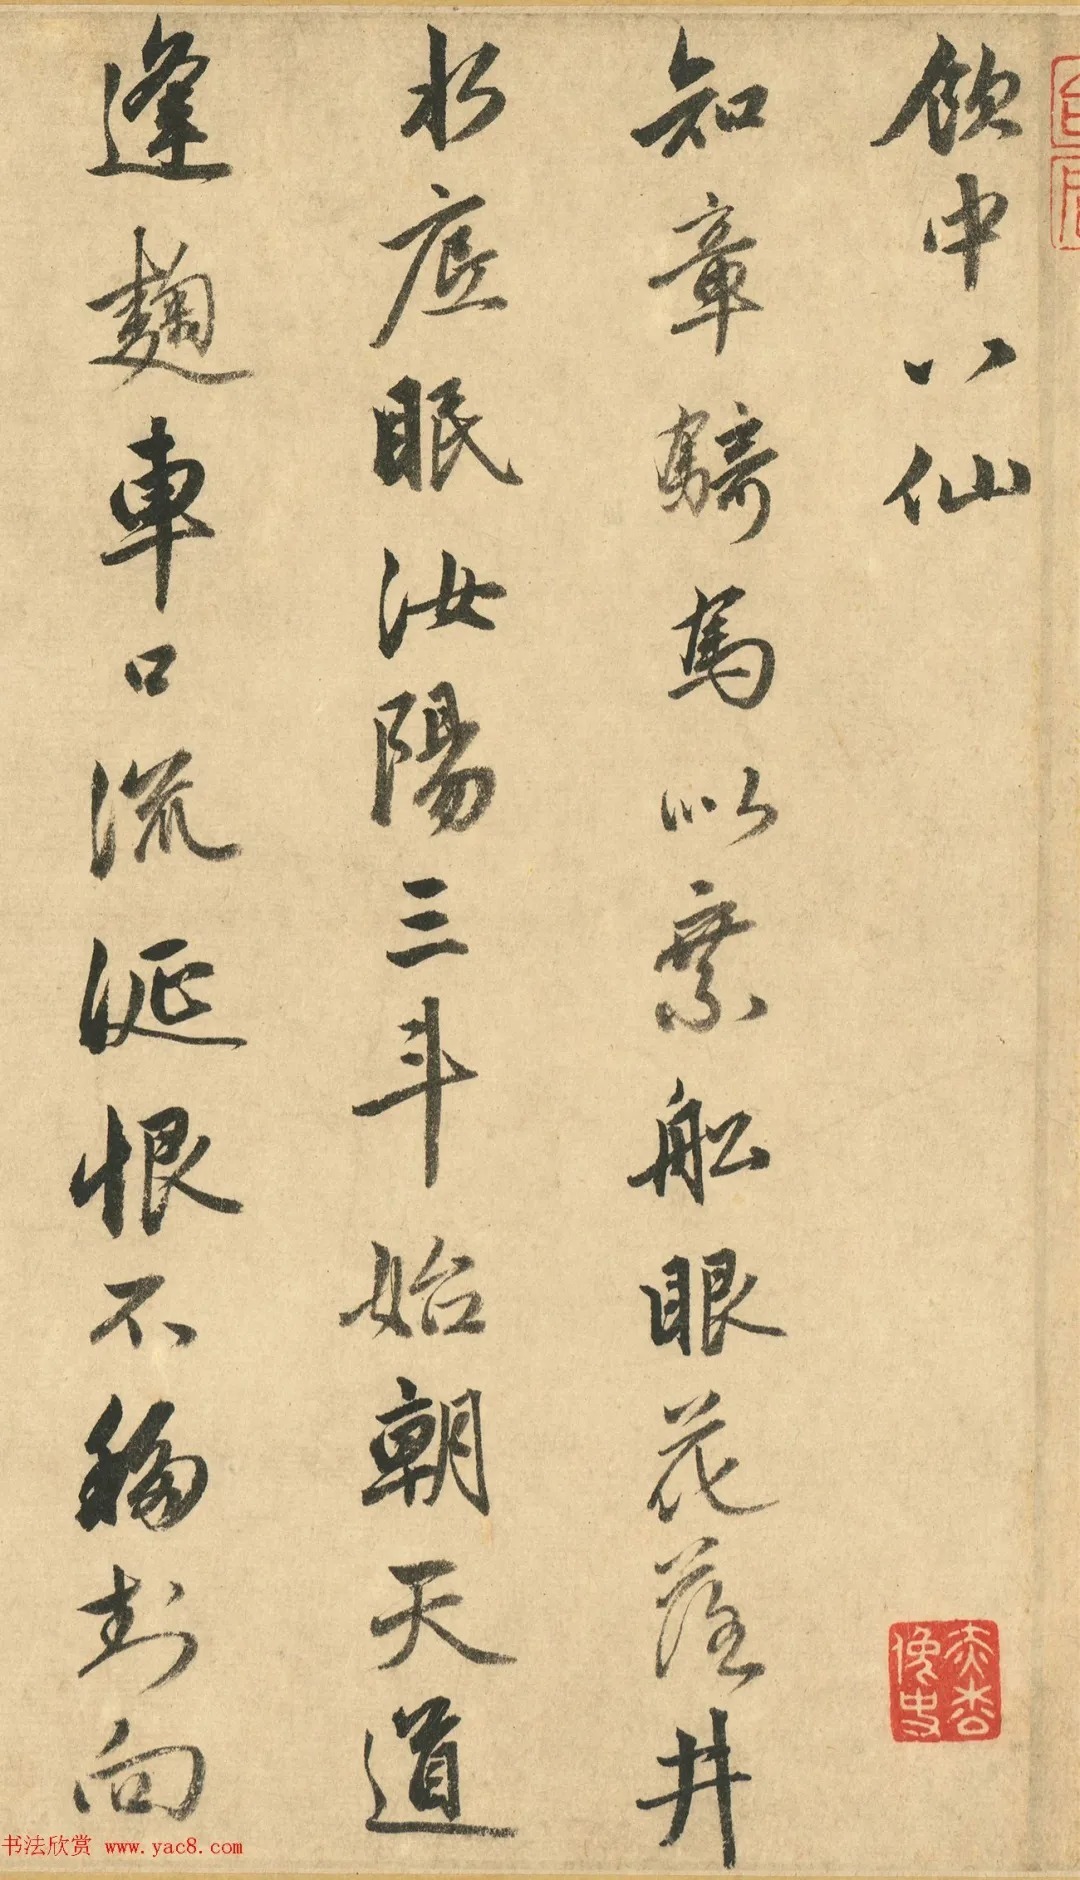 飲中八仙
知章騎馬似乘舩眼花落井
水底眠汝陽三斗始朝天道
逢麴車口流涎恨不移封向
书法欣赏 www.yac8.com